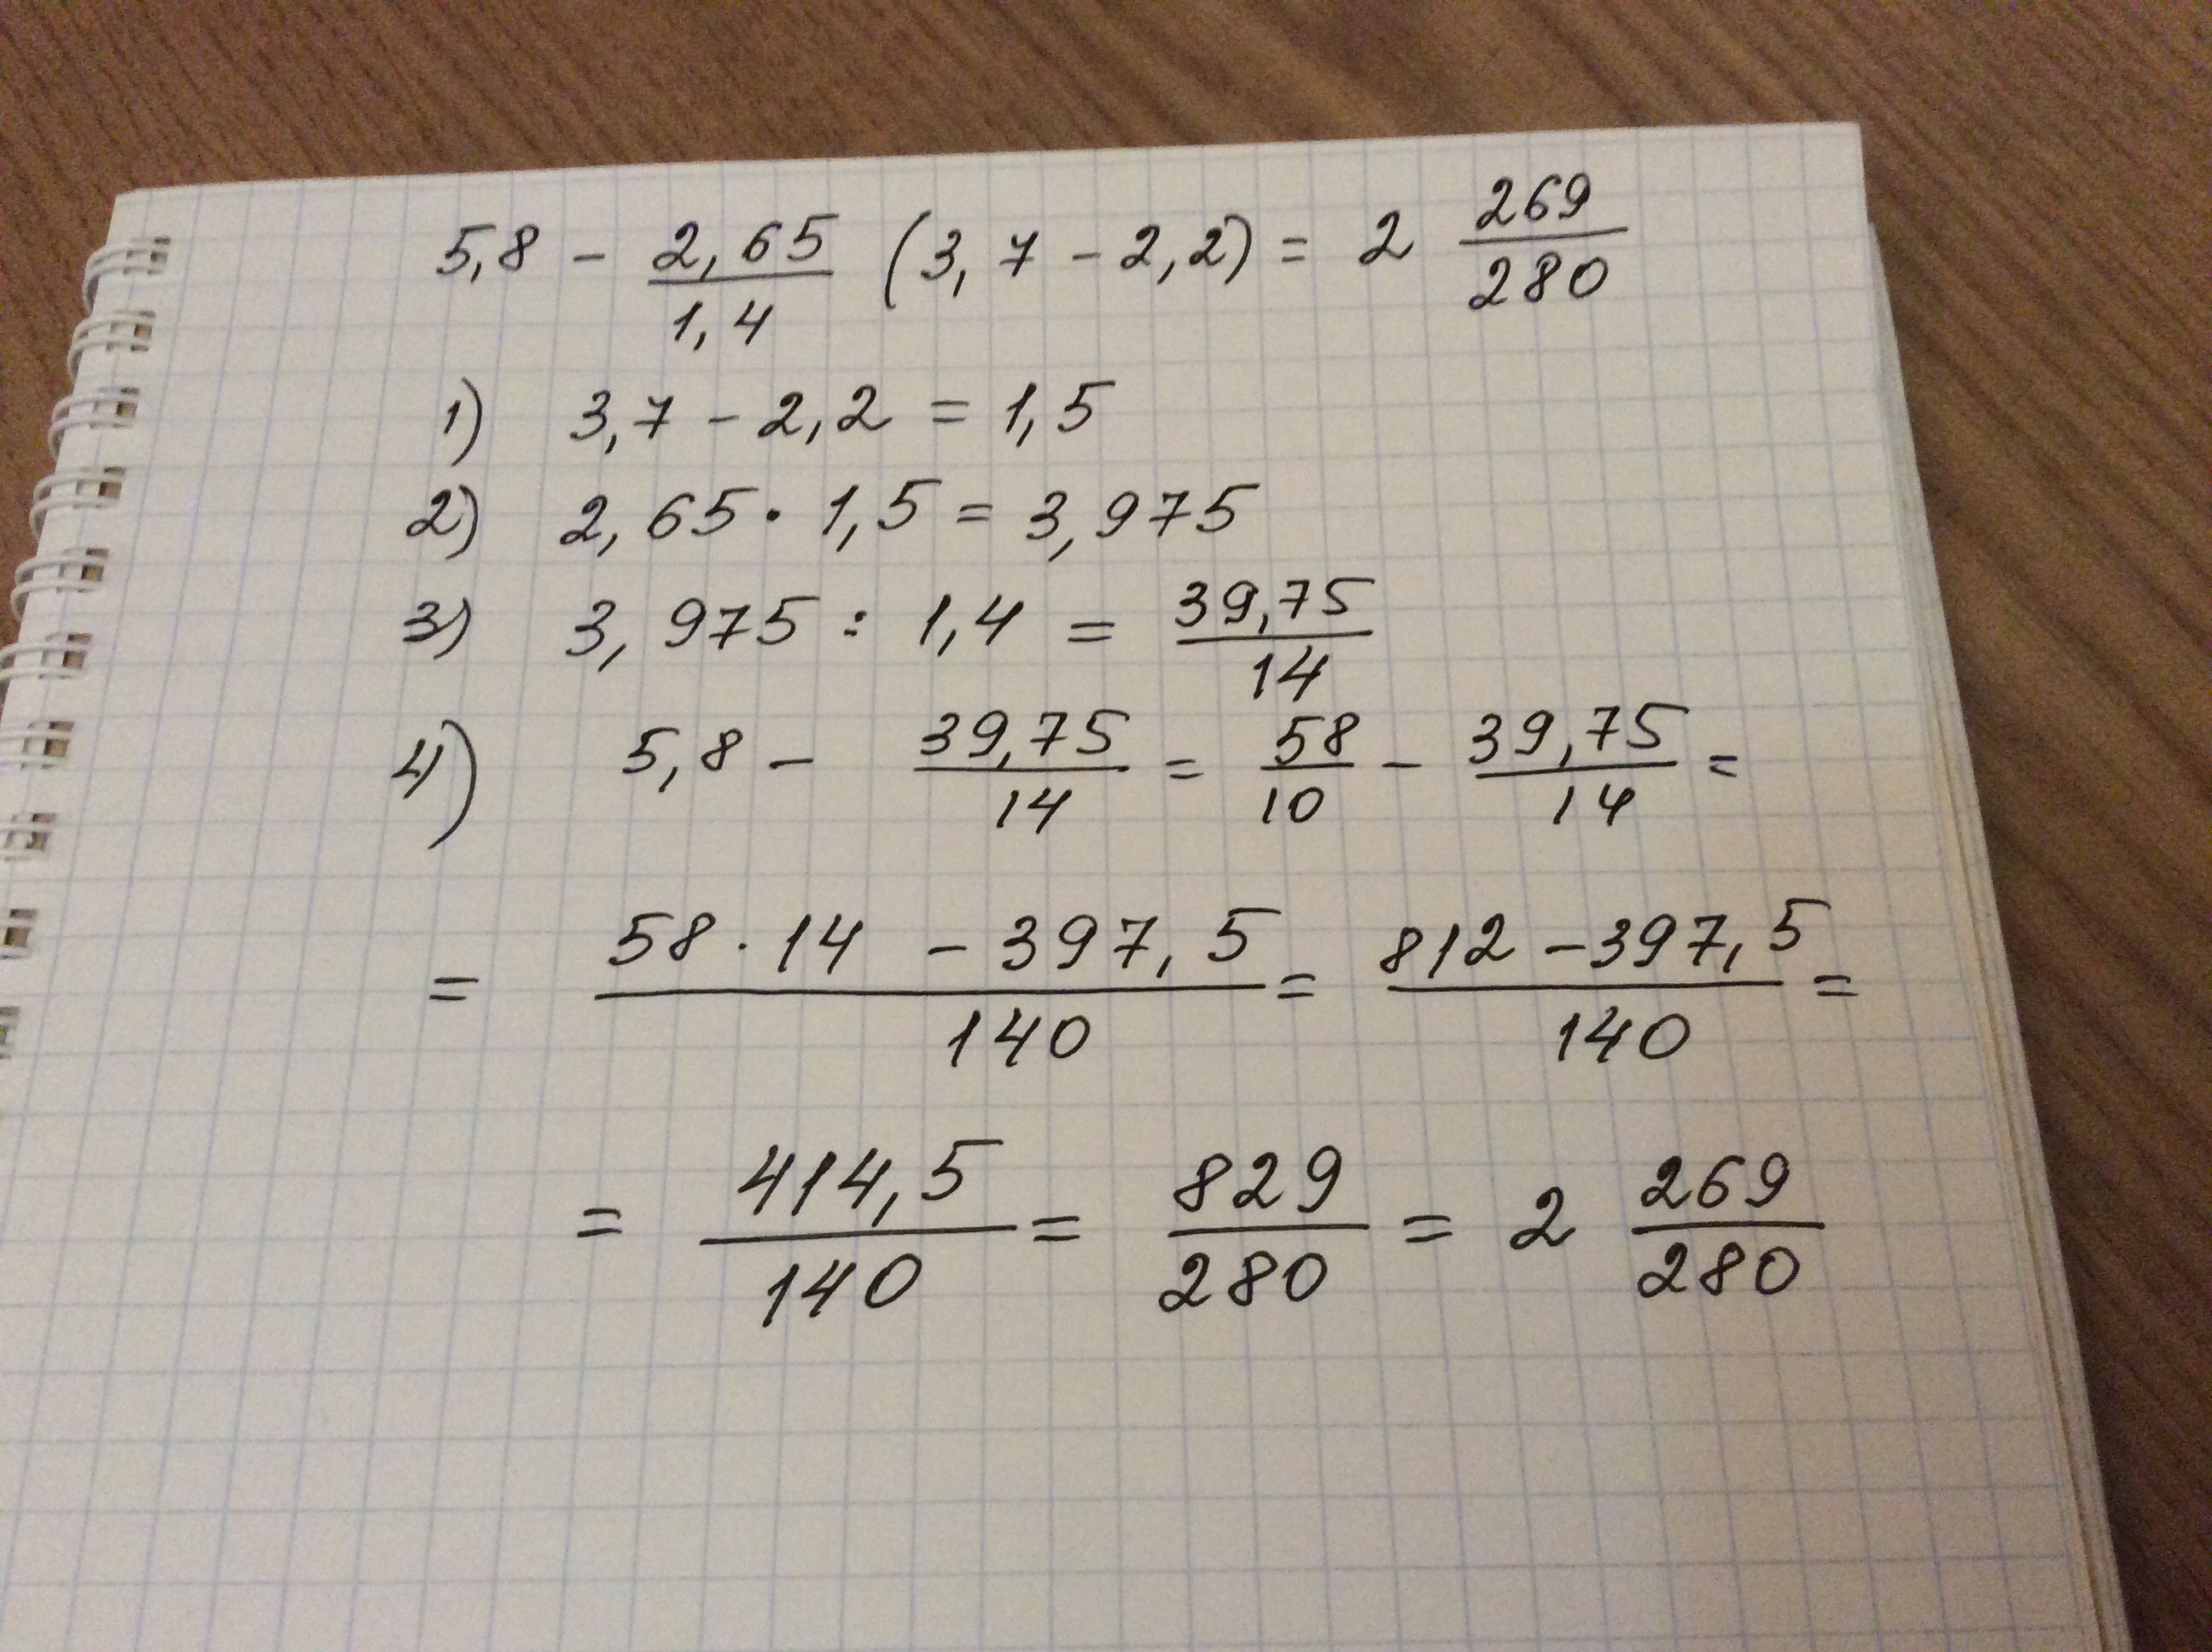 5,8 - 2,65/1,4 (3,7 - 2,2) = 2 269/280
1) 3,7 - 2,2 = 1,5
2) 2,65 · 1,5 = 3,975
3) 3,975 : 1,4 = 39,75/14
4) 5,8 - 39,75/14 = 58/10 - 39,75/14 =
= 58 · 14 - 397,5/140 = 812 - 397,5/140 =
= 414,5/140 = 829/280 = 2 269/280